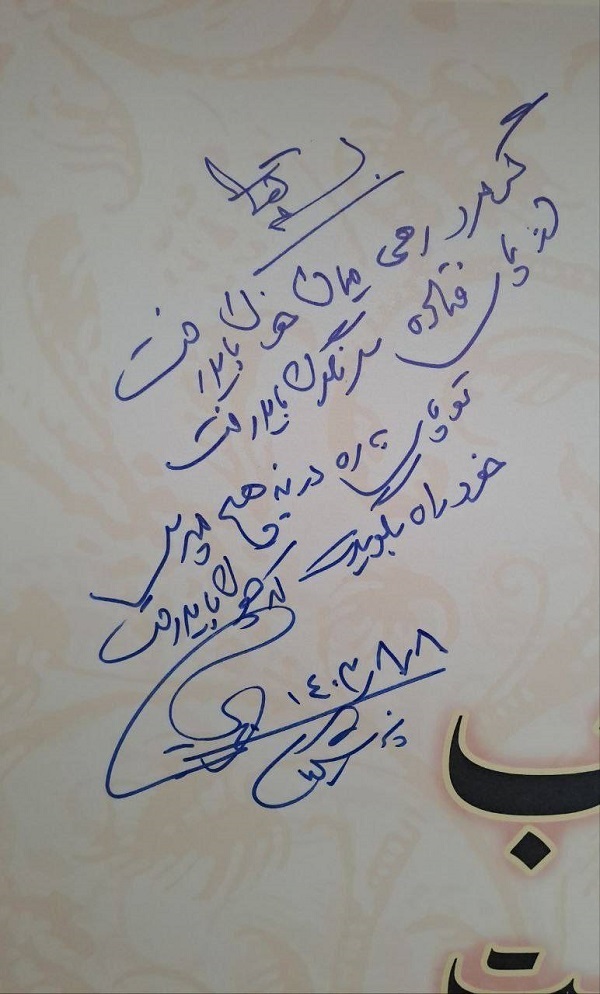 گر مرد رهی میان خون باید رفت
از پای فتاده سرنگون باید رفت
تو پای به راه در نه و هیچ مپرس
خود راه بگویدت که چون باید رفت
۱۴۰۳/۸/۸